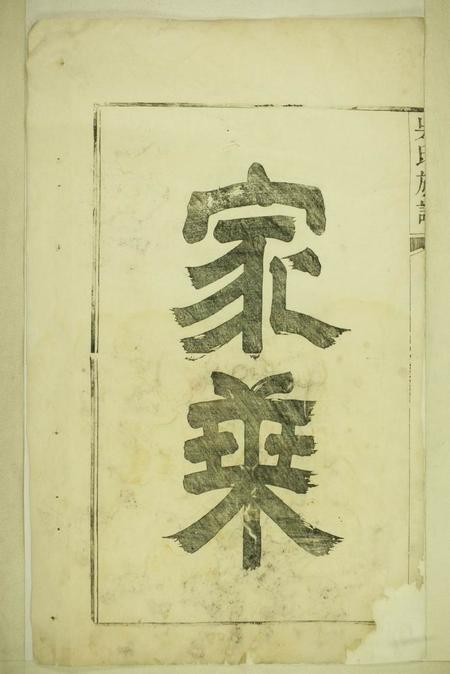 吳氏族譜
家乘